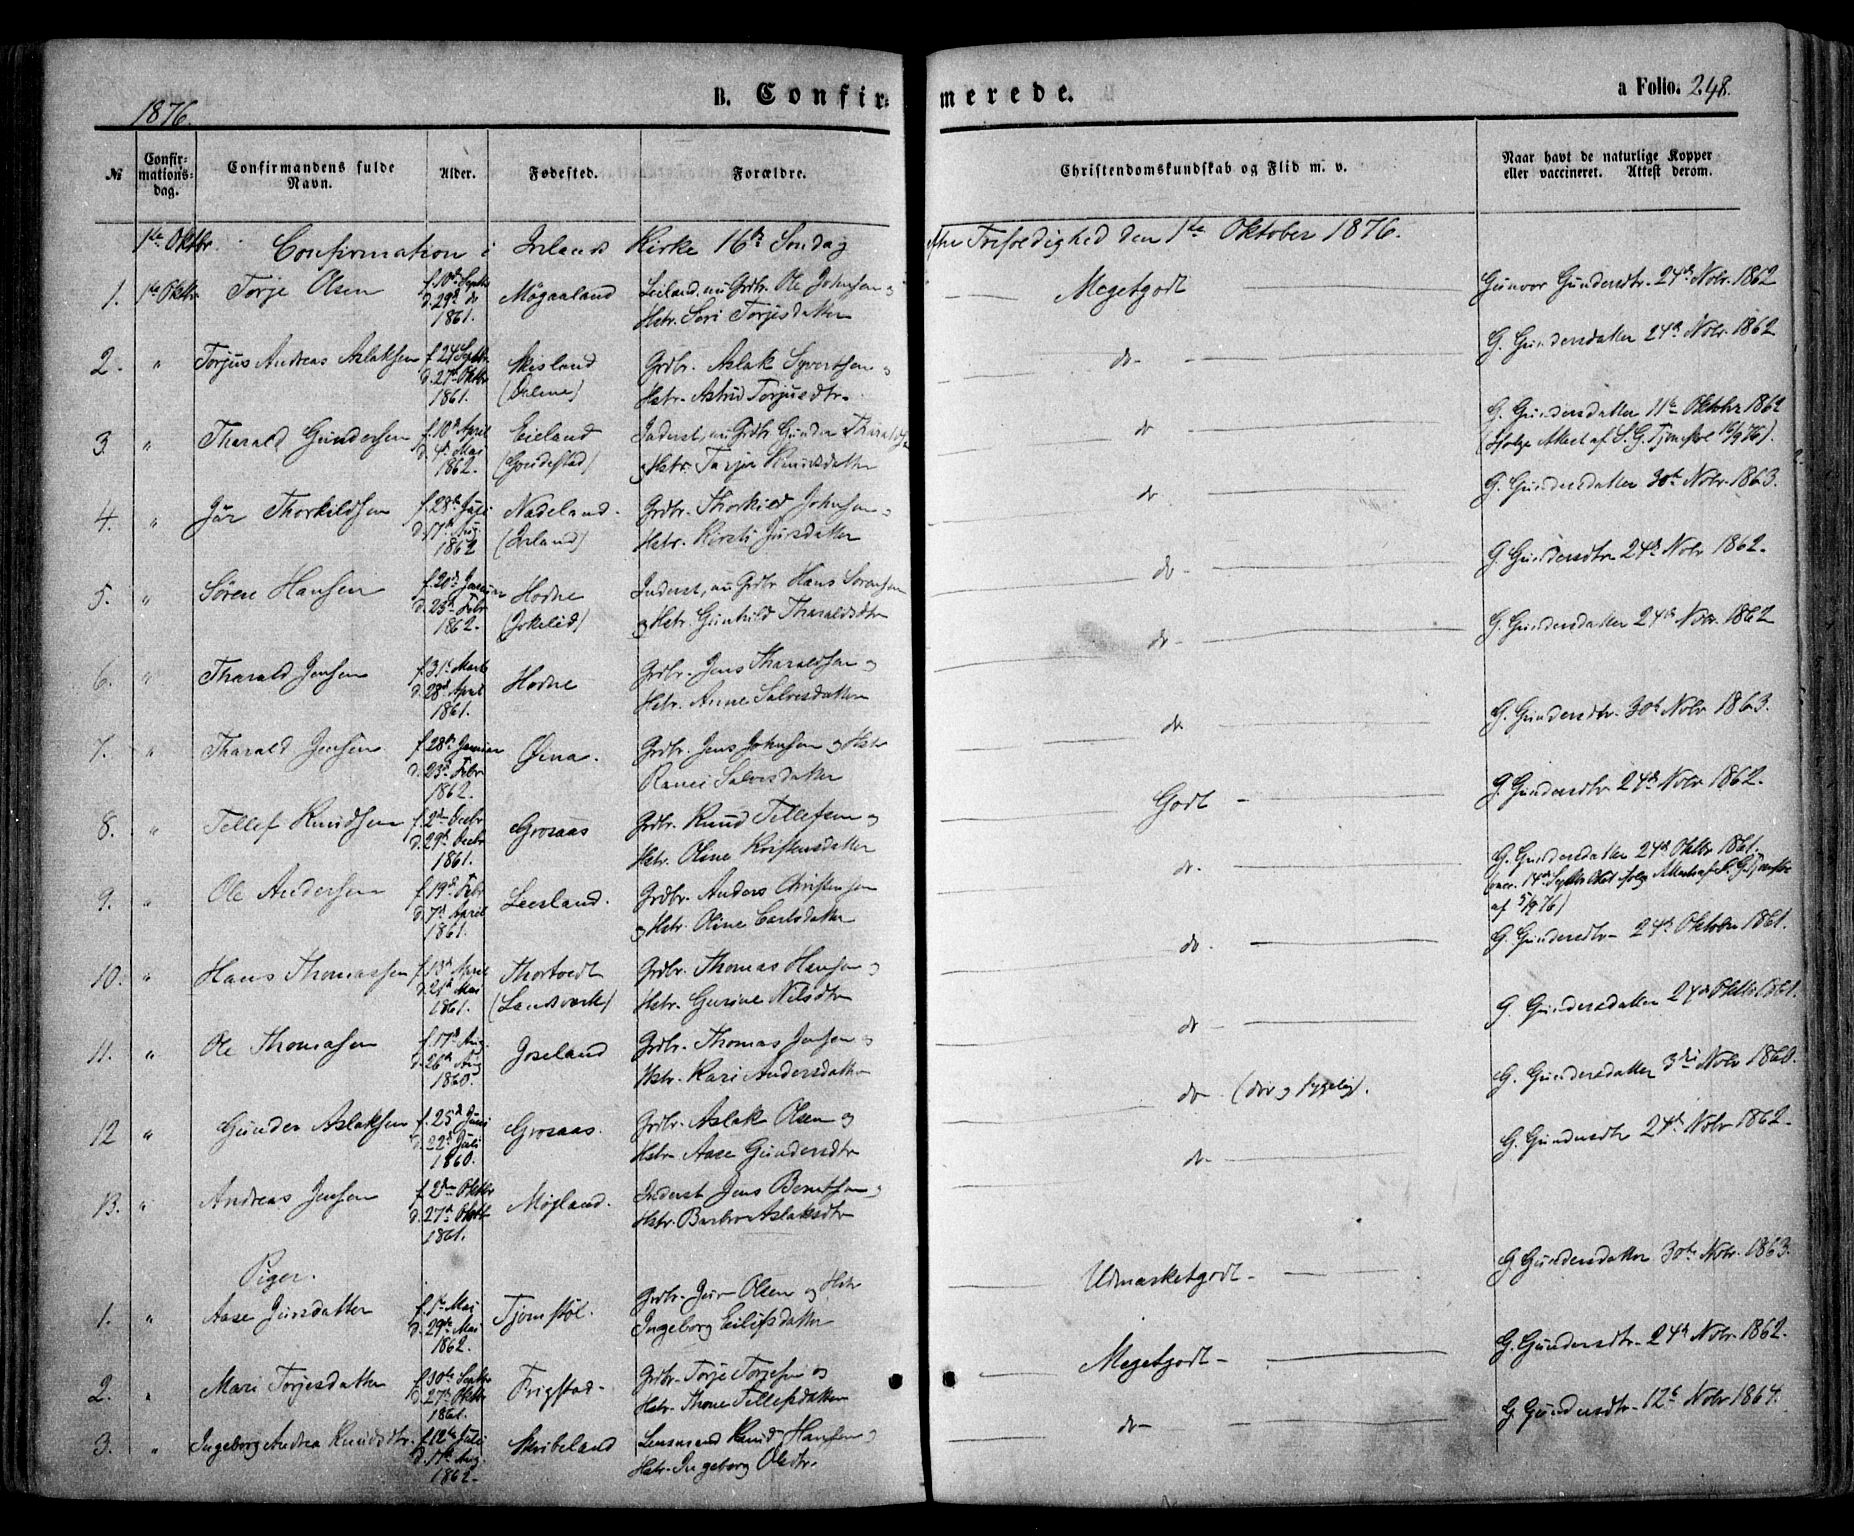 1876.
B. Confirmerede.
a Folio. 248.
№
Confirmationsdag.
Confirmandens fulde Navn.
Alder.
Fødested.
Forældre.
Christendomskundskab og Flid m. v.
Naar havt de naturlige Kopper eller vaccineret. Attest derom.
1ste Oktbr. Confirmation i Kirke 16de Søndag efter Trefoldighed den 1ste Oktober 1876.
1. 1ste Oktbr Torje Olsen f. 10de Septbr d. 29de do 1861. Møgaaland Leiland, nu Grdbr. Ole Johnsen og
Hstr. Siri Torjesdatter
Megetgodt Gunvor Gundersdtr. 24de Novbr. 1862
2. " Torjus Andreas Aslaksen f. 24de Septbr. d. 27de Oktbr 1861. Skisland Grdbr. Aslak Syvertsen og
(Dalene) Hstr. Astrid Torjusdtr.
do G. Gundersdatter 24de Novbr. 1862
3. " Tharald Gundersen f. 10de April d. 4de Mai 1862. Eieland Inderst, nu Grdbr Gunder Tharaldsen
og Hstr. Knudsdatter
do G. Gundersdatter 11te Oktobr 1862
(ifølge Attest af S. G. Tjomstøl 16/9 76).
4. " Jør Thorkildsen f. 28de Juli d. 17de Aug. 1862 Nadeland. Grdbr. Thorkild Johnsen og
Hstr. Kirsti Jørsdatter
do G. Gundersdatter 30te Novbr. 1863.
5. " Søren Hansen f. 20de Januar d. 23de Febr 1862. Hodne Inderst, nu Grdbr Hans Sørensen
(Jokelid) og Hstr. Gunhild Tharaldsdtr
do G. Gundersdtr 24de Novbr 1862.
6. " Tharald Jensen f. 31te Marts d. 28de April 1861. Hodne Grdbr. Jens Tharaldsen og
Hstr. Anne Salvesdatter
do G. Gundersdatter 24de Novbr. 1862
7. " Tharald Jensen f. 28de Januar d. 23de Febr 1862. Øina. Grdbr. Jens Johnsen og Hstr
Ranei Salvesdatter
do G. Gundersdtr. 30te Novbr 1863.
8. " Tellef Knudsen f. 2den Decbr d. 29de Decbr 1861. Grosaas Grdbr. Knud Tellefsen og
Hstr. Oline Kristensdatter
Godt G. Gundersdtr. 24de Novbr 1862.
9. " Ole Andersen f. 19de Febr d. 7de April 1861. Leesland. Grdbr. Anders Christensen
og Hstr. Oline Carlsdatter
do G. Gundersdatter 24de Oktbr 1861.
af 5/9 76)
10. " Hans Thomassen f. 13de April d. 21de Mai 1861. Thortvedt Grdbr. Thomas Hansen og
(Landsverk) Hstr. Gurine Nilsdtr
do G. Gundersdtr 24de Oktobr 1861.
11. " Ole Thomasen f. 17de Aug. d. 26de Aug 1860. Joseland Grdbr. Thomas Jensen og
Hstr. Kari Andersdatter
do G. Gundersdatter 24de Oktbr 1861.
12 " Gunder Aslaksen f. 25de Juni d. 22de Juli 1860. Grosaas. Grdbr. Aslak Olsen og
Hstr. Aase Gundersdtr
do (døv og sygelig). G. Gundersdatter 3die Novbr 1860.
13. " Andreas Jensen f. 2den Oktbr d. 27de Oktbr 1861. Møgland. Inderst Jens Berntsen og
Hstr. Barbro Aslaksdtr
do G. Gundersdtr 24de Novbr 1862.
Piger.
1. " Aase Jørsdatter f. 1ste Mai d. 29de Mai 1862. Tjomstøl. Grdbr. Jør Olsen og Hstr
Ingeborg Eilifsdatter
Udmærketgodt G. Gundersdatter 30te Novbr. 1863.
2. " Mari Torjesdatter f. 30te Septbr d. 27de Oktbr 1861. Frigstad Grdbr. Torje Torjesen og
Hstr. Thone Tellefsdatter
Megetgodt G. Gundersdtr. 24de Novbr. 1862.
3. " Ingeborg Andrea Knudsdtr. f. 12te Juli d. 17de Aug. 1862. Skibeland Lensmand Knud Hansen og
Hstr. Ingeborg Olsdtr.
do G. Gundersdtr. 12te Novbr 1864.